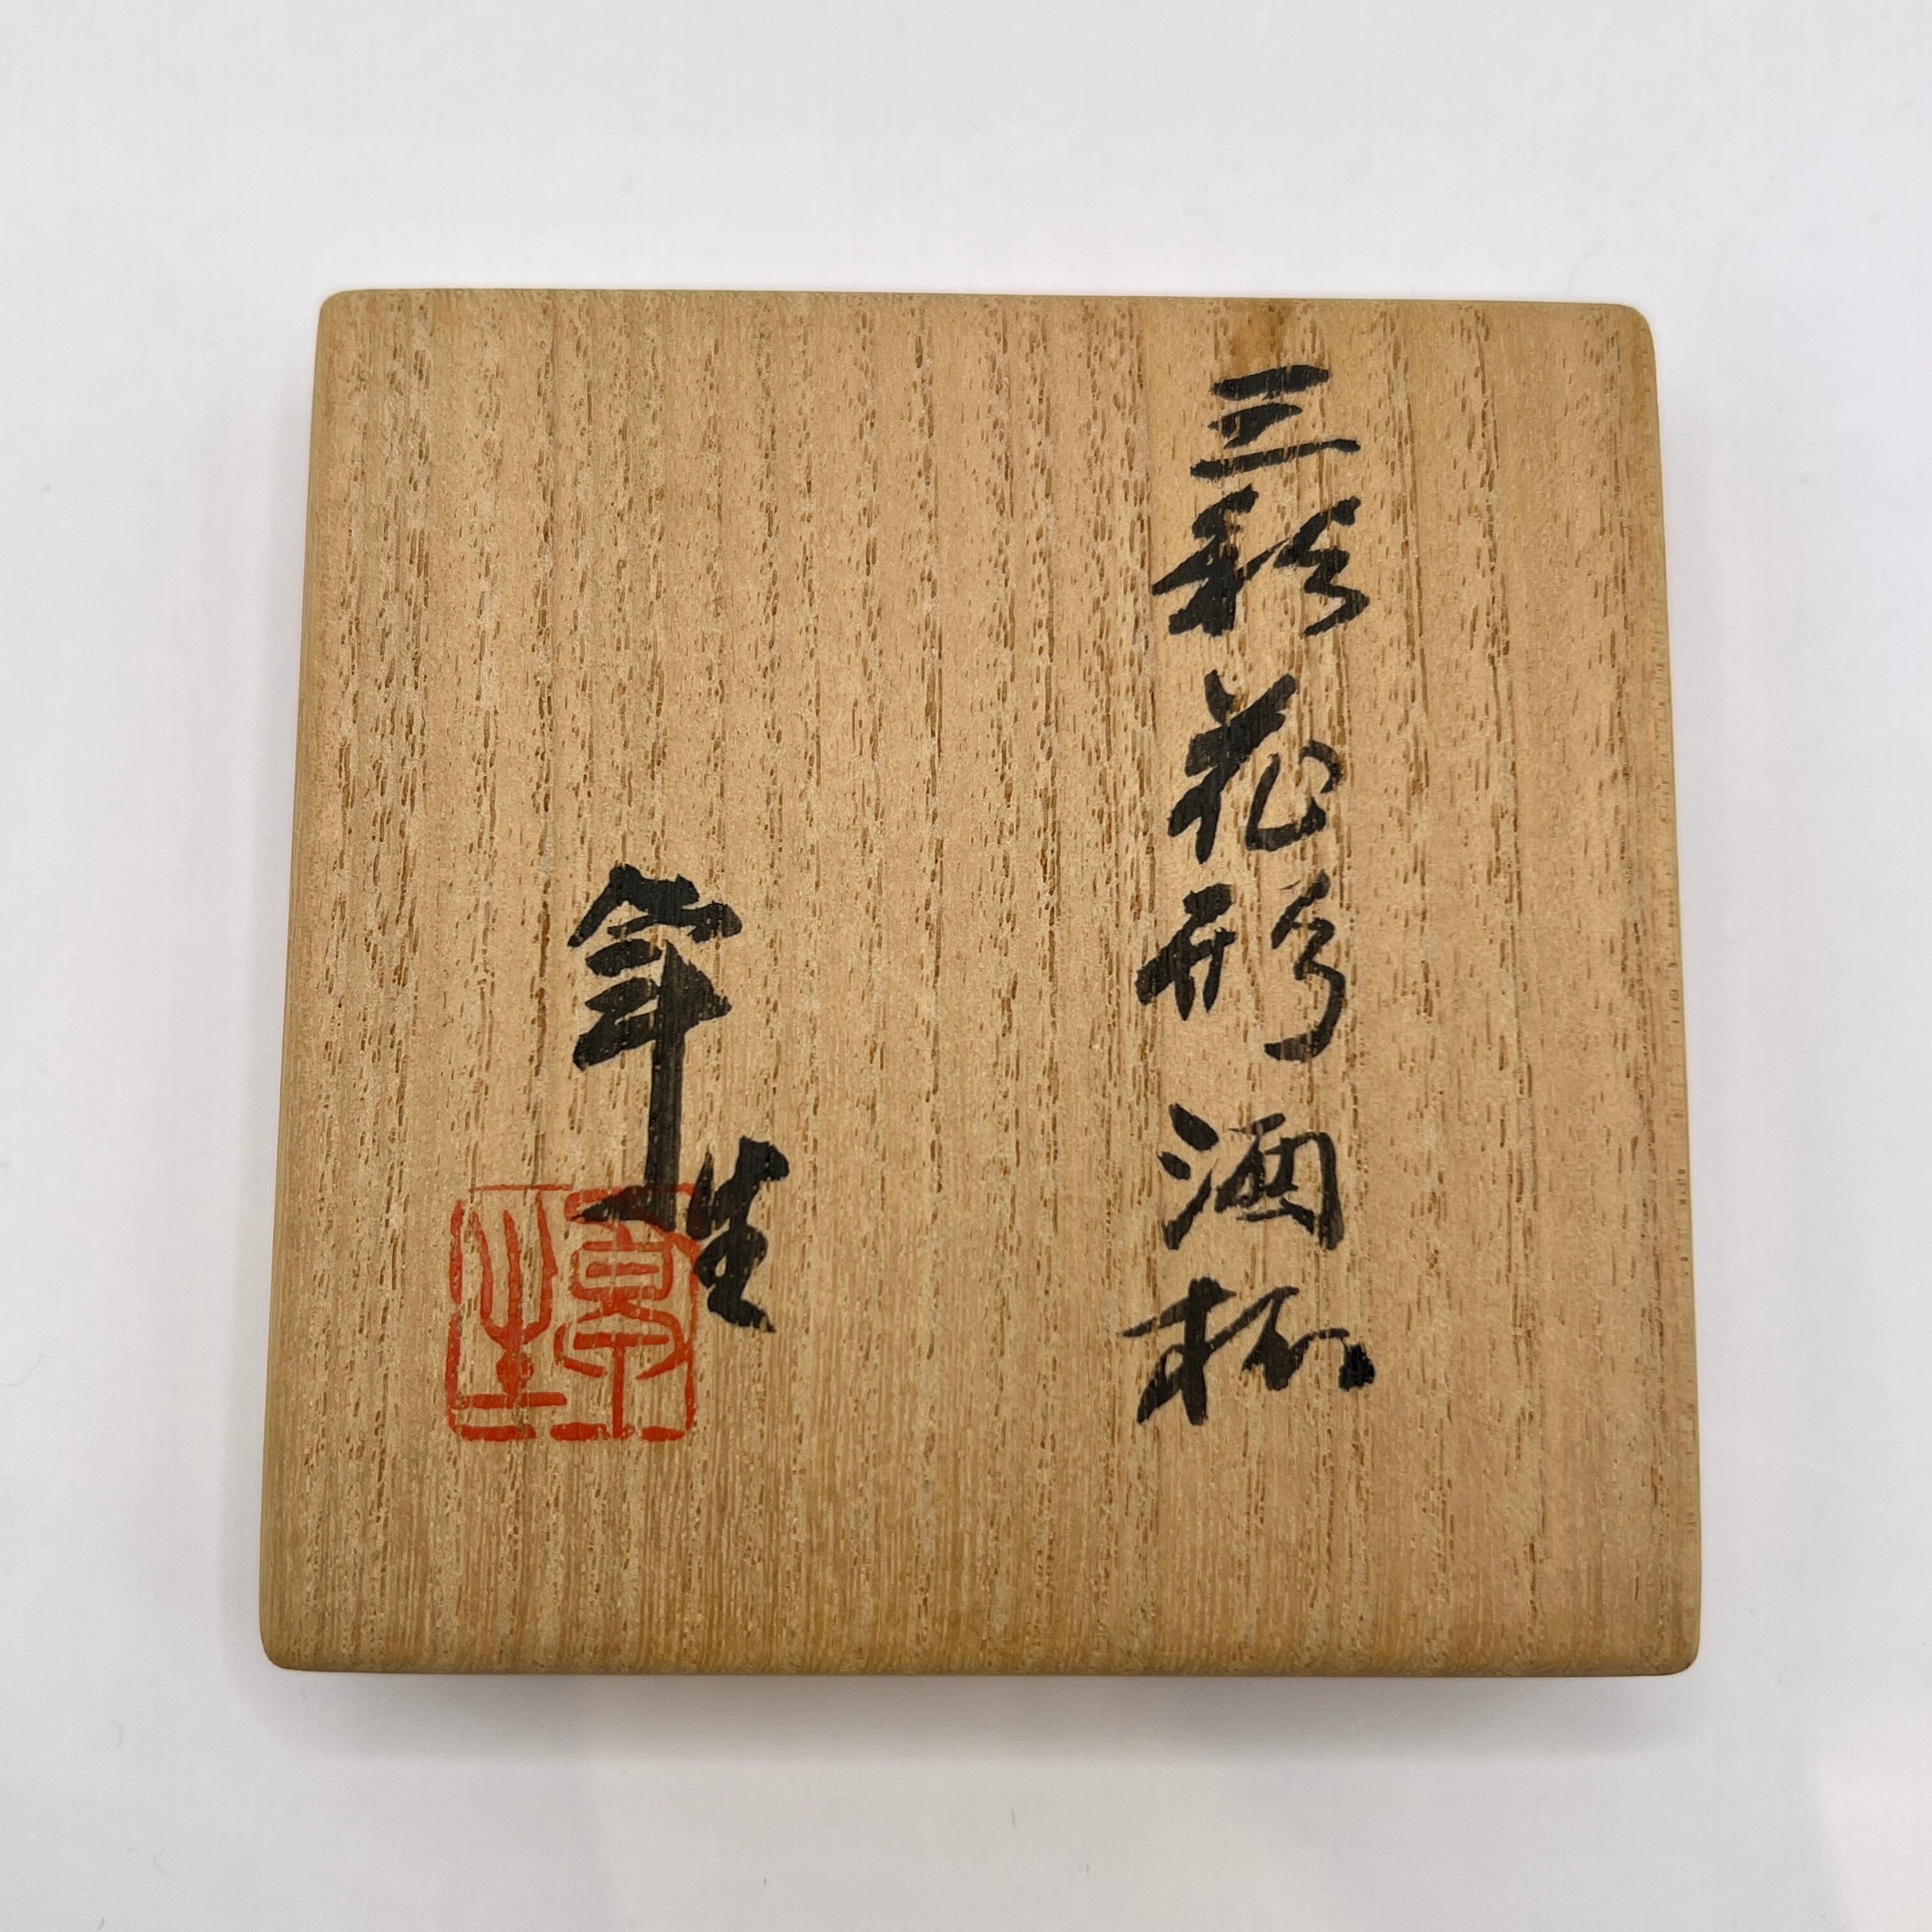 三彩花形酒杯
生